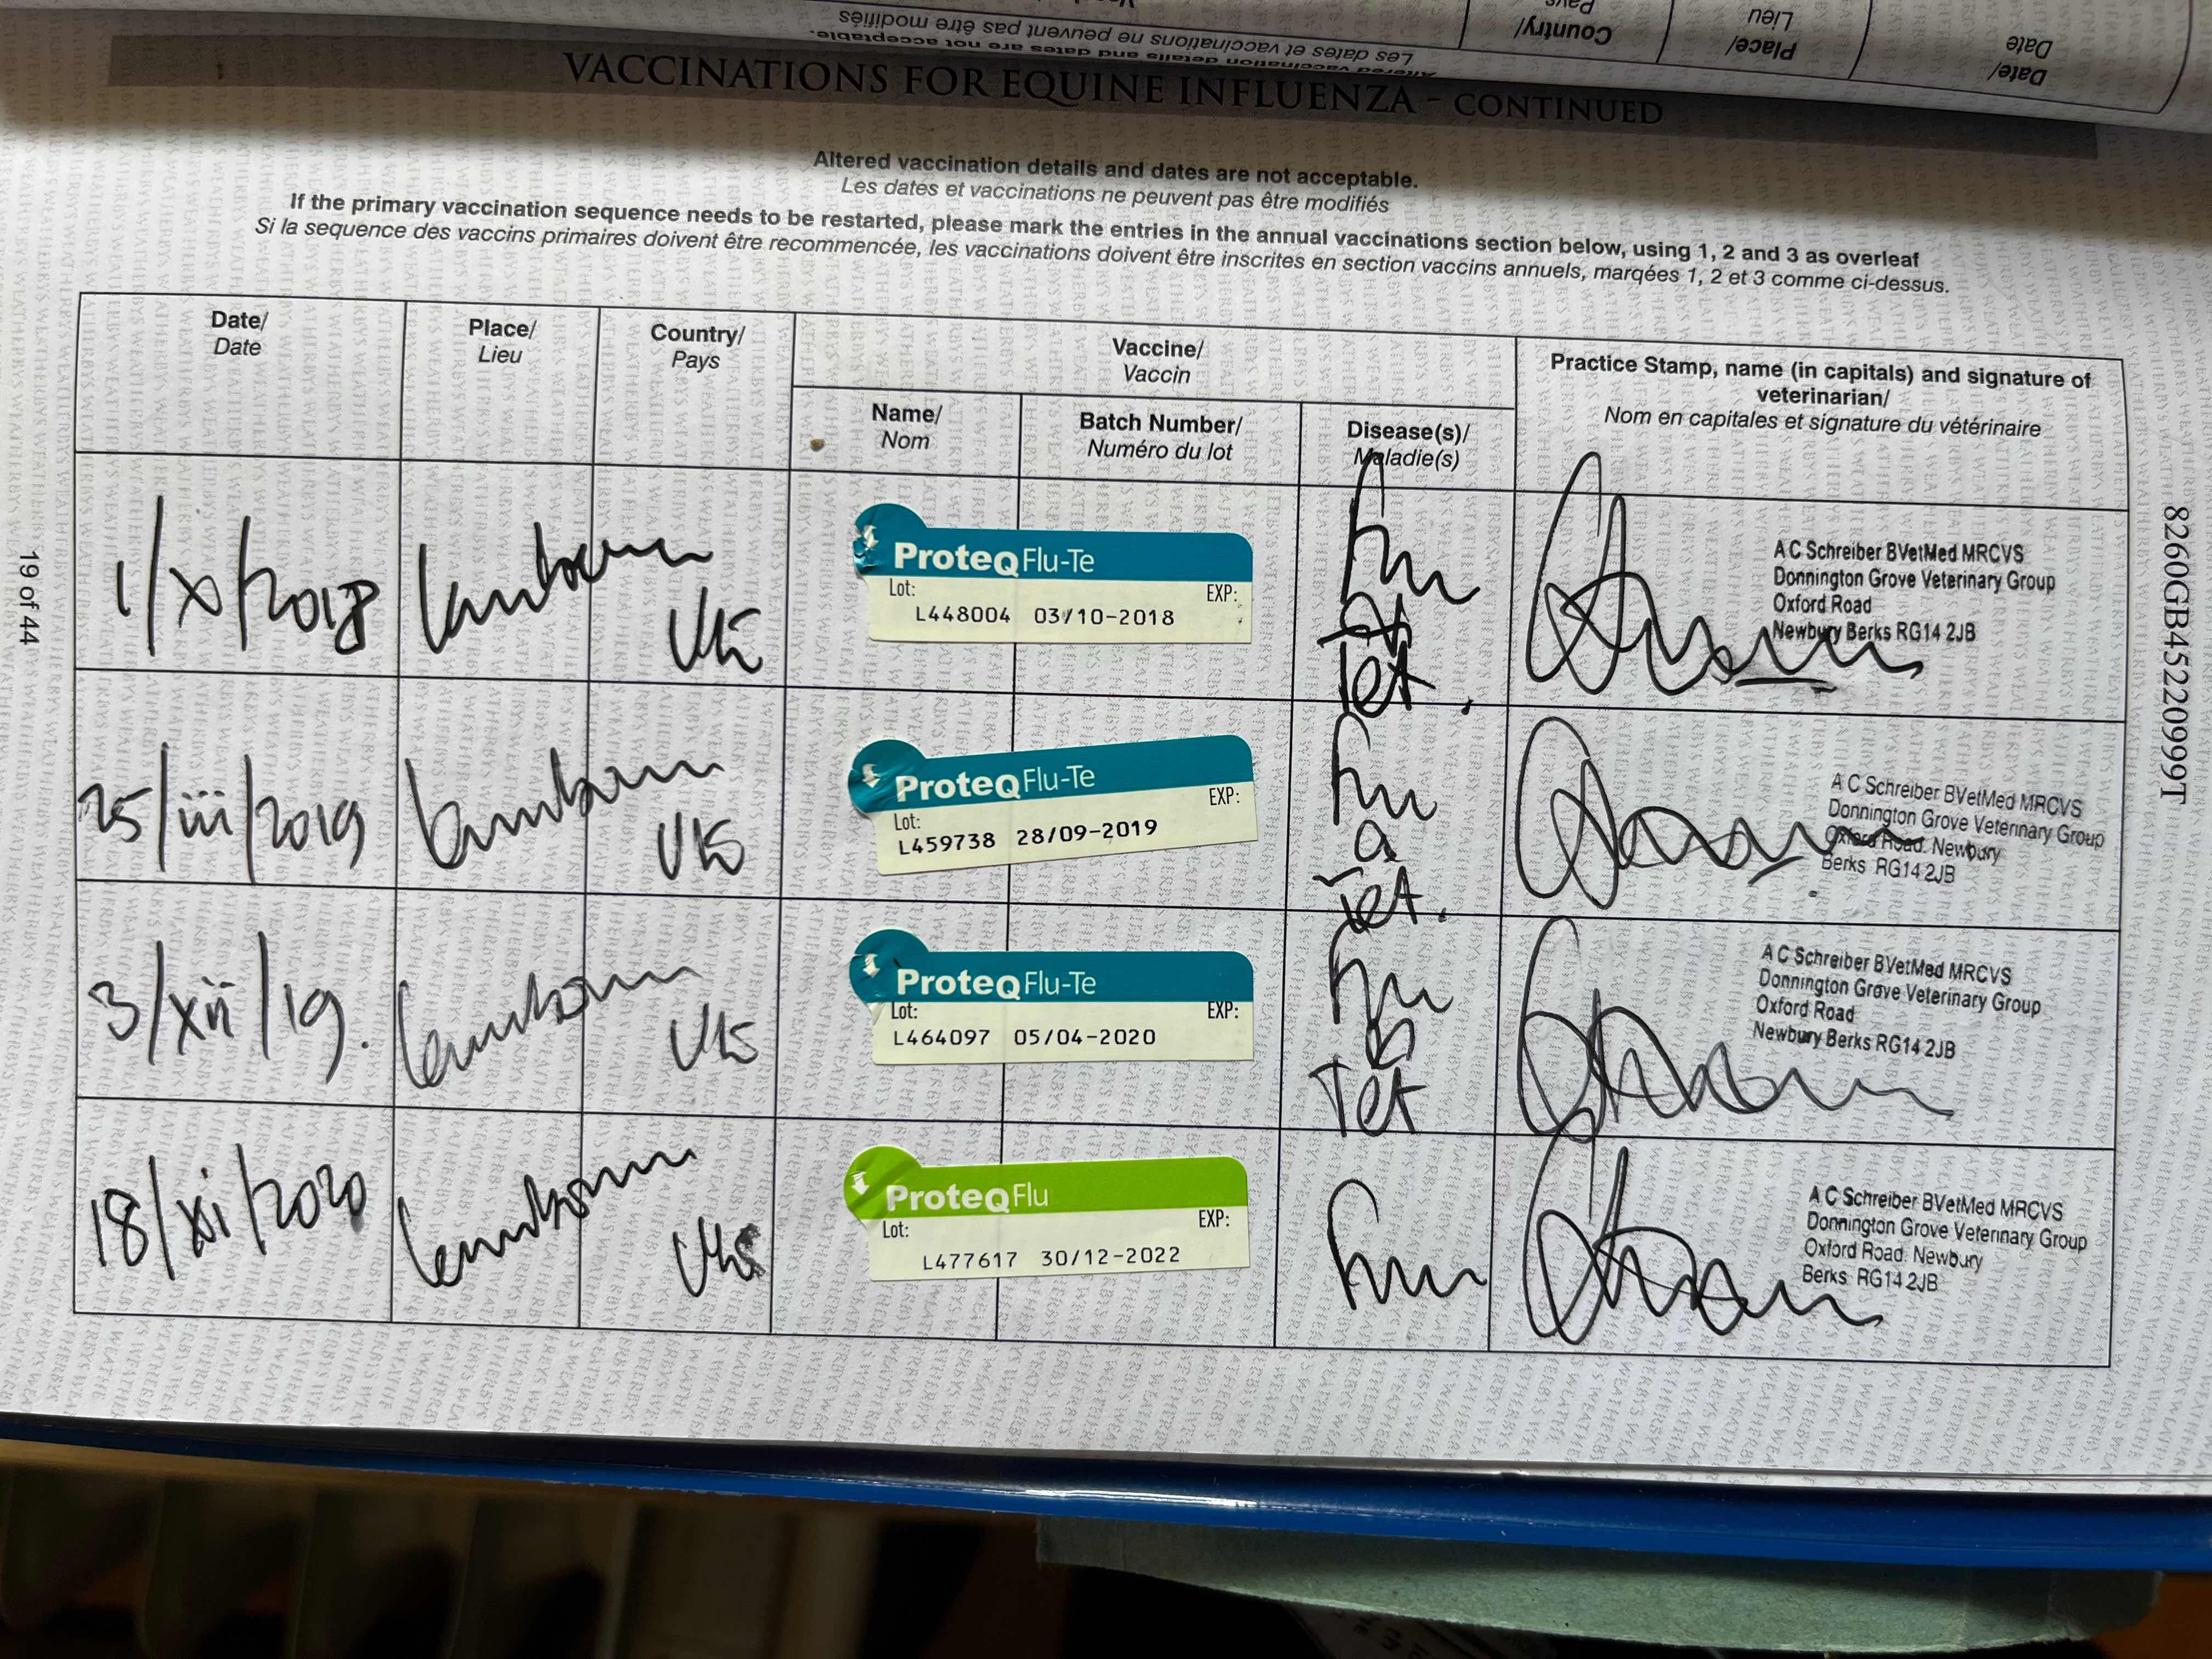 Date/
Date
Place/
Lieu
Country/
Pays
Altered vaccination details and dates are not acceptable.
Les dates et vaccinations ne peuvent pas être modifiés
VACCINATIONS FOR EQUINE INFLUENZA - CONTINUED
Altered vaccination details and dates are not acceptable.
Les dates et vaccinations ne peuvent pas être modifiés
If the primary vaccination sequence needs to be restarted, please mark the entries in the annual vaccinations section below, using 1, 2 and 3 as overleaf
Si la sequence des vaccins primaires doivent être recommencée, les vaccinations doivent être inscrites en section vaccins annuels, marqées 1, 2 et 3 comme ci-dessus.
Date/
Date
Place/
Lieu
Country/
Pays
Vaccine/
Vaccin
Name/
Nom
Batch Number/
Numéro du lot
Disease(s)/
Maladie(s)
Practice Stamp, name (in capitals) and signature of
veterinarian/
Nom en capitales et signature du vétérinaire
1/x/2018
Lambourn
UK
ProteqFlu-Te
Lot: EXP:
L448004 03/10-2018
Flu
&
Tet.
A C Schreiber BVetMed MRCVS
Donnington Grove Veterinary Group
Oxford Road
Newbury Berks RG14 2JB
25/iii/2019
Lambourn
UK
ProteqFlu-Te
Lot: EXP:
L459738 28/09-2019
Flu
&
Tet.
A C Schreiber BVetMed MRCVS
Donnington Grove Veterinary Group
Oxford Road. Newbury
Berks RG14 2JB
3/xii/19.
Lambourn
UK
ProteqFlu-Te
Lot: EXP:
L464097 05/04-2020
Flu
&
Tet
A C Schreiber BVetMed MRCVS
Donnington Grove Veterinary Group
Oxford Road
Newbury Berks RG14 2JB
18/xi/2020
Lambourn
UK
ProteqFlu
Lot: EXP:
L477617 30/12-2022
Flu
A C Schreiber BVetMed MRCVS
Donnington Grove Veterinary Group
Oxford Road. Newbury
Berks RG14 2JB
19 of 44
8260GB45220999T